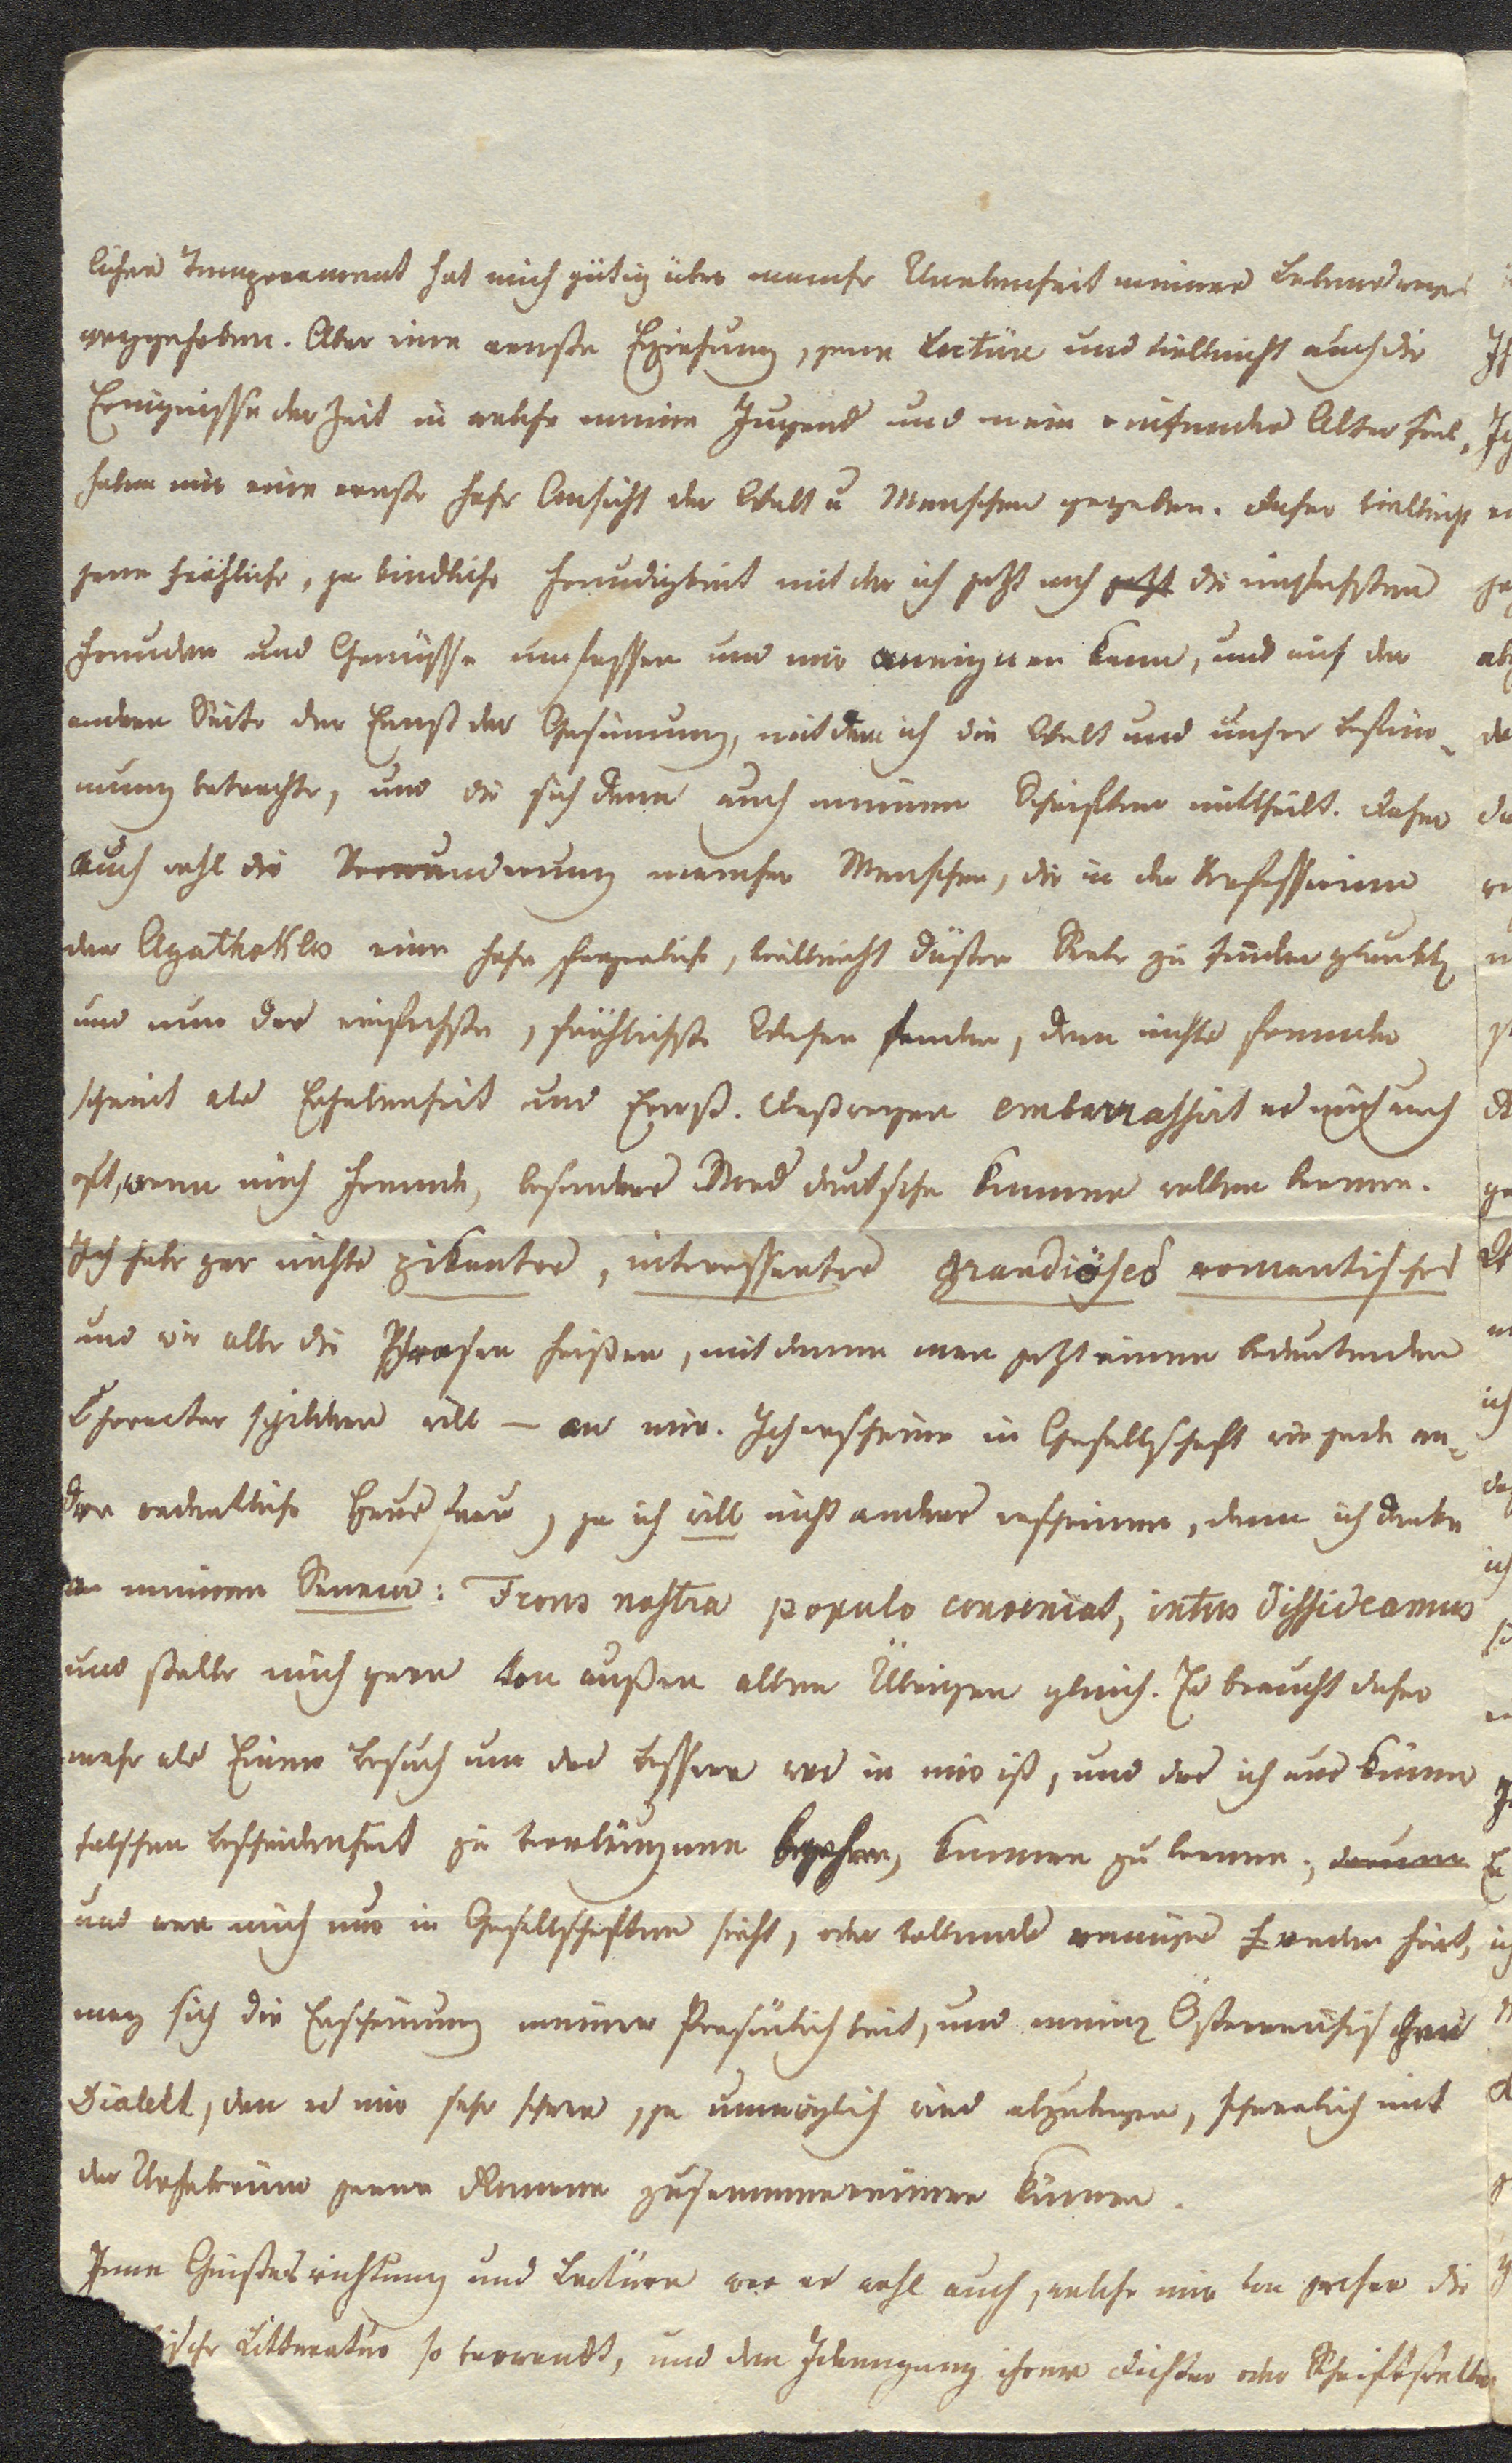 liches Temperament hat mich gütig über manche Unebenheit meines Lebensweges
weggehoben. Aber eine ernste Erziehung, jene Lectüre und vielleicht auch die
Ereignisse der Zeit in welche meine Jugend und mein reiferes Alter fiel,
haben mir eine ernste hohe Ansicht der Welt u Menschen gegeben. Daher vielleicht
jene fröhliche, ja kindliche Freudigkeit mit der ich jetzt noch jetzt die einfachsten
Freuden und Genüsse umfassen und mir aneignen kann, und auf der
andern Seite der Ernst der Gesinnung, mit dem ich die Welt und unsre Bestim-
mung betrachte, und die sich denn auch meinen Schriften mittheilt. Daher
auch wohl die Verwunderung mancher Menschen, die in der Verfasserinn
des Agathokles eine hohe feyerliche, vielleicht düstre Seele zu finden glaubten
und nun das einfachste, fröhlichste Wesen fanden, dem nichts fremder
scheint als Erhabenheit und Ernst. Deßwegen embarrassirt es mich auch
oft, wenn mich Fremde, besonders Norddeutsche kennen wollen lernen.
Ich habe gar nichts pikantes, interessantes grandiöses romantisches
und wie alle die Phrasen heißen, mit denen man jetzt einen bedeutenden
Character schildern will – an mir. Ich erscheine in Gesellschaft wie jede an-
dre ordentliche Hausfrau, ja ich will nicht anders erscheinen, denn ich denke
an meinen Seneca: Frons nostra populo conveniat, intus dissideamus
und stelle mich gern von außen allen Übrigen gleich. Es braucht daher
mehr als Einen Besuch um das Bessere was in mir ist, und das ich aus keiner
falschen Bescheidenheit zu verläugnen begehre, kennen zu lernen; darum
und wer mich nur in Gesellschaften sieht, oder vollends weniges reden hört,
mag sich die Erscheinung meiner Persönlichkeit, und meines Österreichischen
Dialekt, den es mir sehr schwer, ja unmöglich wird abzulegen, schwerlich mit
der Urheberinn jener Romane zusammenreimen können.
Jene Geistesrichtung und Lectüre war es wohl auch, welche mir von jeher die
ische Litteratur so verwandt, und den Ideengang ihrer Dichter oder Schriftsteller